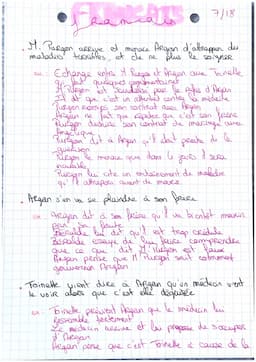 FRANÇAIS
Français
7/18
. M. Purgon arrive et menace Argan d'attraper des
maladies terribles, et de ne plus le soigner
Echange entre M Purgon et Argan avec Toinette
qui fait quelques commentaires
M Purgon est scandalisé par le refus d'Argan
Il dit que c'est un attentat contre la médecine
Purgon rompt son contrat avec Argan
Argan ne fait que répéter que c'est son frère
Purgon déchire son contrat de mariage avec
Angélique
Purgon dit à Argan qu'il était proche de la
guérison
Purgon le menace que dans 4 jours il sera
incurable
Purgon lui cite un enchaînement de maladie
qu'il attrapera avant de mourir
. Argan s'en va se plaindre à son frère
Argan dit à son frère qu'il va bientôt mourir
par sa faute
Béralde lui dit qu'il est trop crédule
Béralde essaye de lui faire comprendre
que ce que dit M Purgon est faux
Argan pense que M Purgon sait comment
gouverner Argan
. Toinette vient dire à Argan qu'un médecin vient
le voir alors que c'est elle déguisée
Toinette prévient Argan que le médecin lui
ressemble fortement
Le médecin arrive et lui propose de s'occuper
d'Argan
Argan pense que c'est Toinette à cause de la